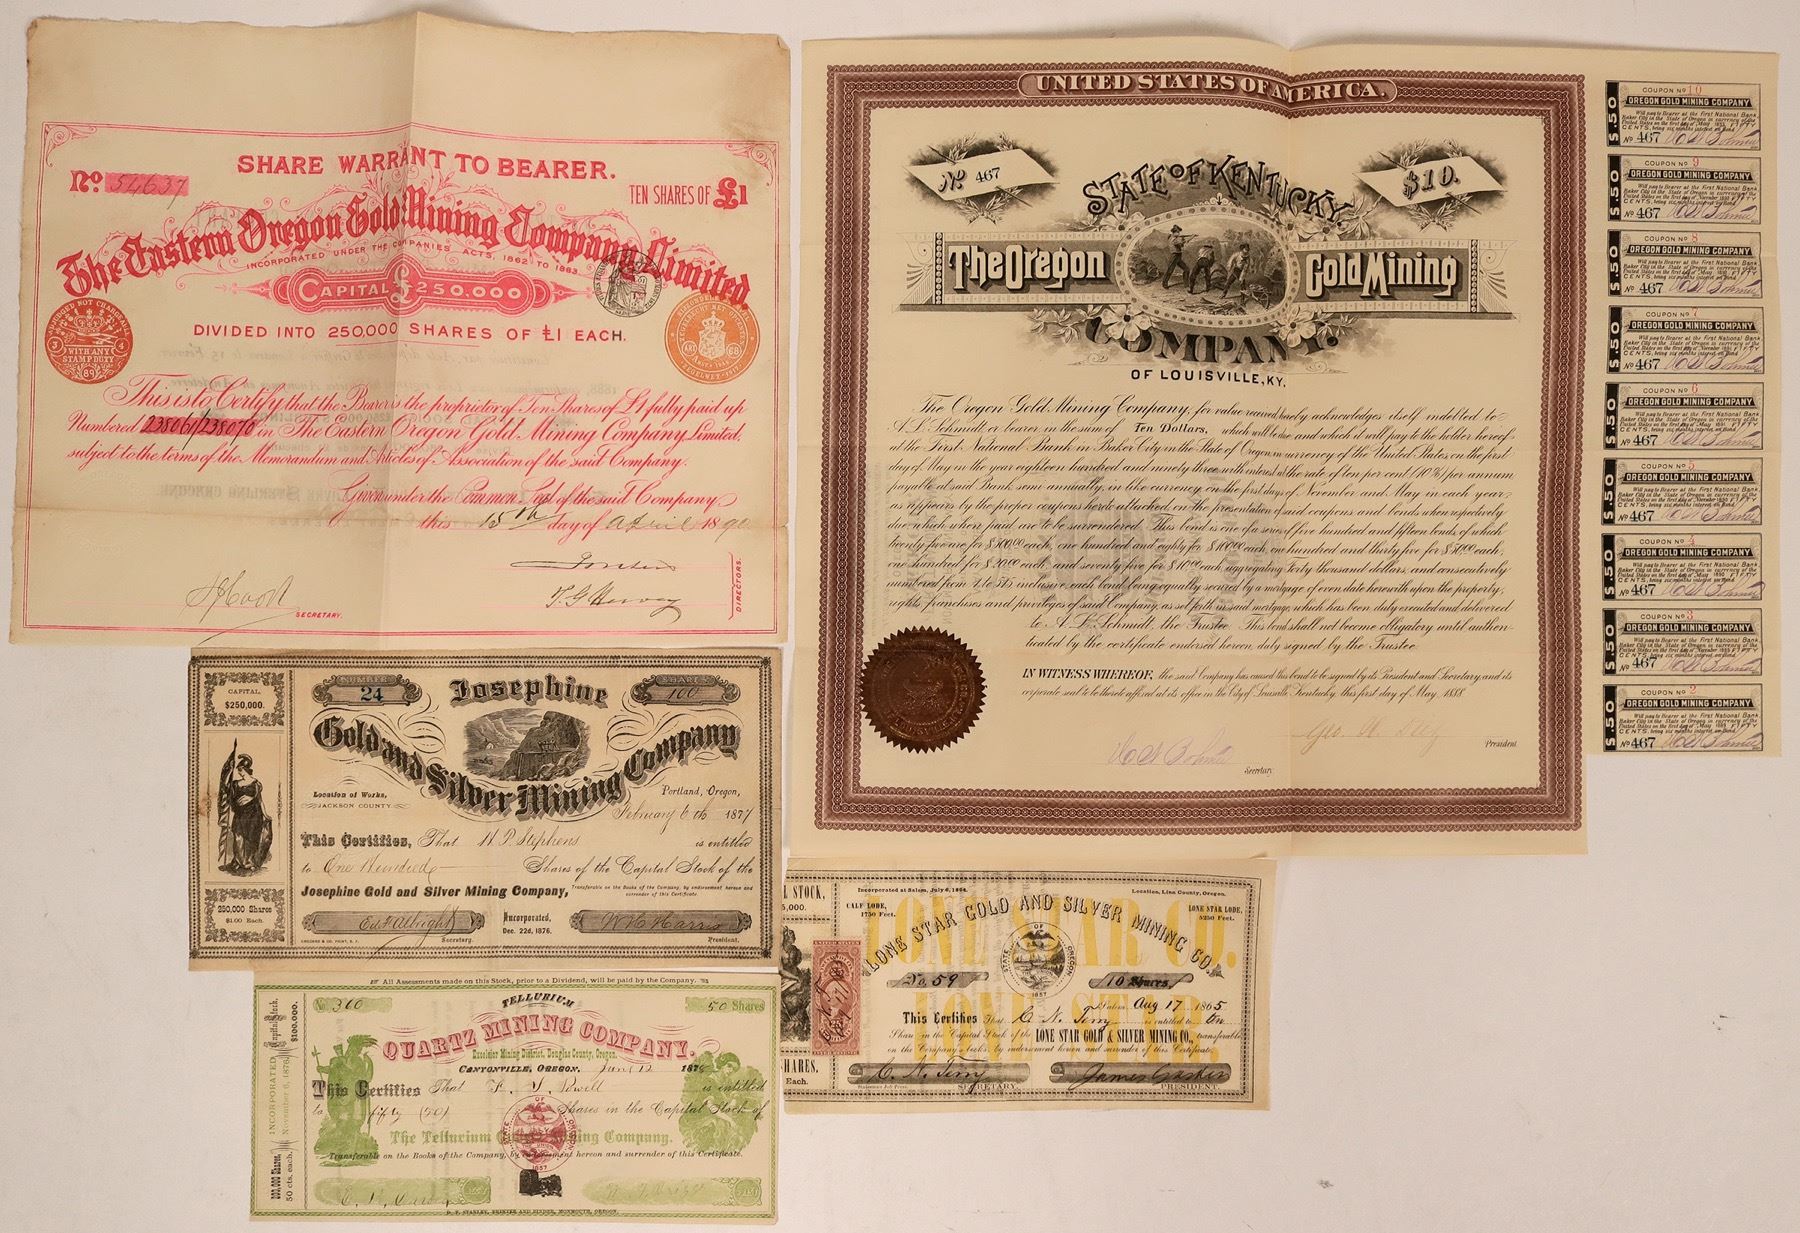 SHARE WARRANT TO BEARER.
No. 54637
TEN SHARES OF £1
The Eastern Oregon Gold Mining Company, Limited.
INCORPORATED UNDER THE COMPANIES ACTS, 1862 TO 1883
CAPITAL £250,000
DIVIDED INTO 250,000 SHARES OF £1 EACH.
WITH ANY
STAMP DUTY
This is to Certify that the Bearer is the proprietor of Ten Shares of £1 fully paid up
Numbered 238061/238070 in The Eastern Oregon Gold Mining Company, Limited,
subject to the terms of the Memorandum and Articles of Association of the said Company.
Given under the Common Seal of the said Company
this 15th day of April 1890
SECRETARY.
DIRECTORS.
UNITED STATES OF AMERICA.
No 467
$10.
STATE OF KENTUCKY
The Oregon Gold Mining
COMPANY.
OF LOUISVILLE, KY.
The Oregon Gold Mining Company, for value received hereby acknowledges itself indebted to
A. L. Schmidt or bearer in the sum of Ten Dollars, which will be due and which it will pay to the holder hereof
at the First National Bank in Baker City in the State of Oregon in currency of the United States on the first
day of May in the year eighteen hundred and ninety three with interest at the rate of ten per cent (10%) per annum
payable at said Bank semi annually, in like currency on the first days of November and May in each year
as appears by the proper coupons hereto attached, on the presentation of said coupons and bonds when respectively
due which where paid are to be surrendered. This bond is one of a series of five hundred and fifteen bonds of which
twenty five are for $500.00 each, one hundred and eighty for $100.00 each, one hundred and thirty five for $50.00 each,
one hundred for $20.00 each, and seventy five for $10.00 each, aggregating forty thousand dollars, and consecutively
numbered from 1 to 515 inclusive each bond being equally secured by a mortgage of even date herewith upon the property,
rights franchises and privileges of said Company, as set forth in said mortgage which has been duly executed and delivered
to A. L. Schmidt, the Trustee. This bond shall not become obligatory until authen-
ticated by the certificate endorsed hereon, duly signed by the Trustee.
IN WITNESS WHEREOF, the said Company has caused this bond to be signed by its President and Secretary, and its
corporate seal to be hereto affixed at its office in the City of Louisville Kentucky this first day of May, 1888
Secretary
President
COUPON No 10
OREGON GOLD MINING COMPANY
$.50
No 467
COUPON No 9
OREGON GOLD MINING COMPANY
$.50
No 467
COUPON No 8
OREGON GOLD MINING COMPANY
$.50
No 467
COUPON No 7
OREGON GOLD MINING COMPANY
$.50
No 467
COUPON No 6
OREGON GOLD MINING COMPANY
$.50
No 467
COUPON No 5
OREGON GOLD MINING COMPANY
$.50
No 467
COUPON No 4
OREGON GOLD MINING COMPANY
$.50
No 467
COUPON No 3
OREGON GOLD MINING COMPANY
$.50
No 467
COUPON No 2
OREGON GOLD MINING COMPANY
$.50
No 467
CAPITAL,
$250,000.
NUMBER
24
SHARES
100
Josephine
Gold and Silver Mining Company
Location of Works,
JACKSON COUNTY
Portland, Oregon,
February 6th 1877
This Certifies, That H. P. Stephens is entitled
to One Hundred Shares of the Capital Stock of the
Josephine Gold and Silver Mining Company, Transferable on the Books of the Company, by endorsement hereon and
surrender of this Certificate.
250,000 Shares
$1.00 Each.
Secretary.
Incorporated,
Dec. 22d, 1876.
W H Harris
President.
L STOCK,
5,000.
Incorporated at Salem, July 6, 1864.
Location, Linn County, Oregon.
CALF LODE,
1750 Feet.
LONE STAR LODE,
5250 Feet.
LONE STAR GOLD AND SILVER MINING CO.
LONE STAR
STATE OF OREGON
1857
No. 59
10 Shares
Salem Aug 17 1865
This Certifies That C. N. Terry is entitled to ten
Share in the Capital Stock of the LONE STAR GOLD & SILVER MINING CO., transferable
on the Company's books, by indorsement hereon and surrender of this Certificate.
HARES.
Each.
C. N. Terry
SECRETARY
PRESIDENT
All Assessments made on this Stock, prior to a Dividend, will be paid by the Company.
No 360
TELLURIUM
50 Shares
QUARTZ MINING COMPANY.
Excelsior Mining District, Douglas County, Oregon.
CANYONVILLE, OREGON.
June 12 1879
INCORPORATED
November 6, 1878.
Capital Stock,
$100,000.
This Certifies That is entitled
to fifty (50) Shares in the Capital Stock of
The Tellurium Quartz Mining Company.
Transferable on the Books of the Company, by endorsement hereon and surrender of this Certificate.
STATE OF OREGON
1857
200,000 Shares.
50 cts. each.
D. F. STANLEY, PRINTER AND BINDER, MONMOUTH, OREGON.